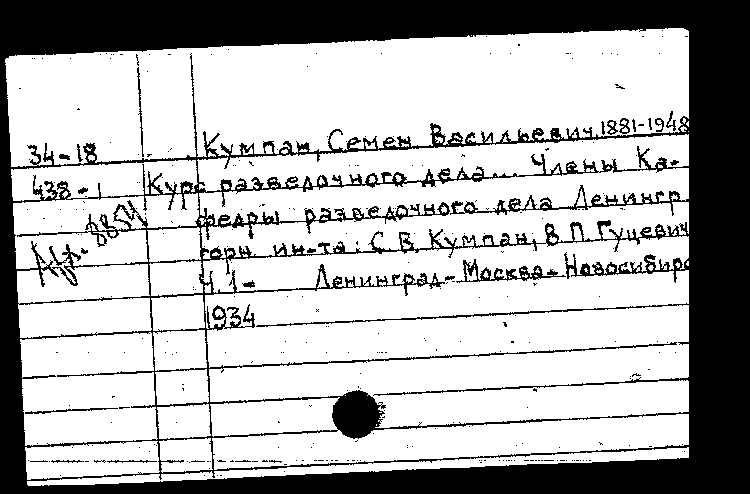 34-18 Кумпан, Семен Васильевич, 1881-1948
438-1 Курс разведочного дела... Члены Ка-
федры разведочного дела Ленингр.
горн. ин-та: С.В. Кумпан, В.П. Гуцевич
Ч. 1- Ленинград-Москва-Новосибирс
1934
8854